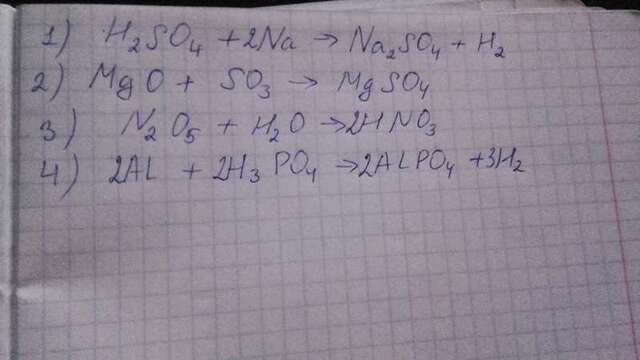 1) H₂SO₄ + 2Na → Na₂SO₄ + H₂
2) MgO + SO₃ → MgSO₄
3) N₂O₅ + H₂O → 2HNO₃
4) 2AL + 2H₃PO₄ → 2ALPO₄ + 3H₂